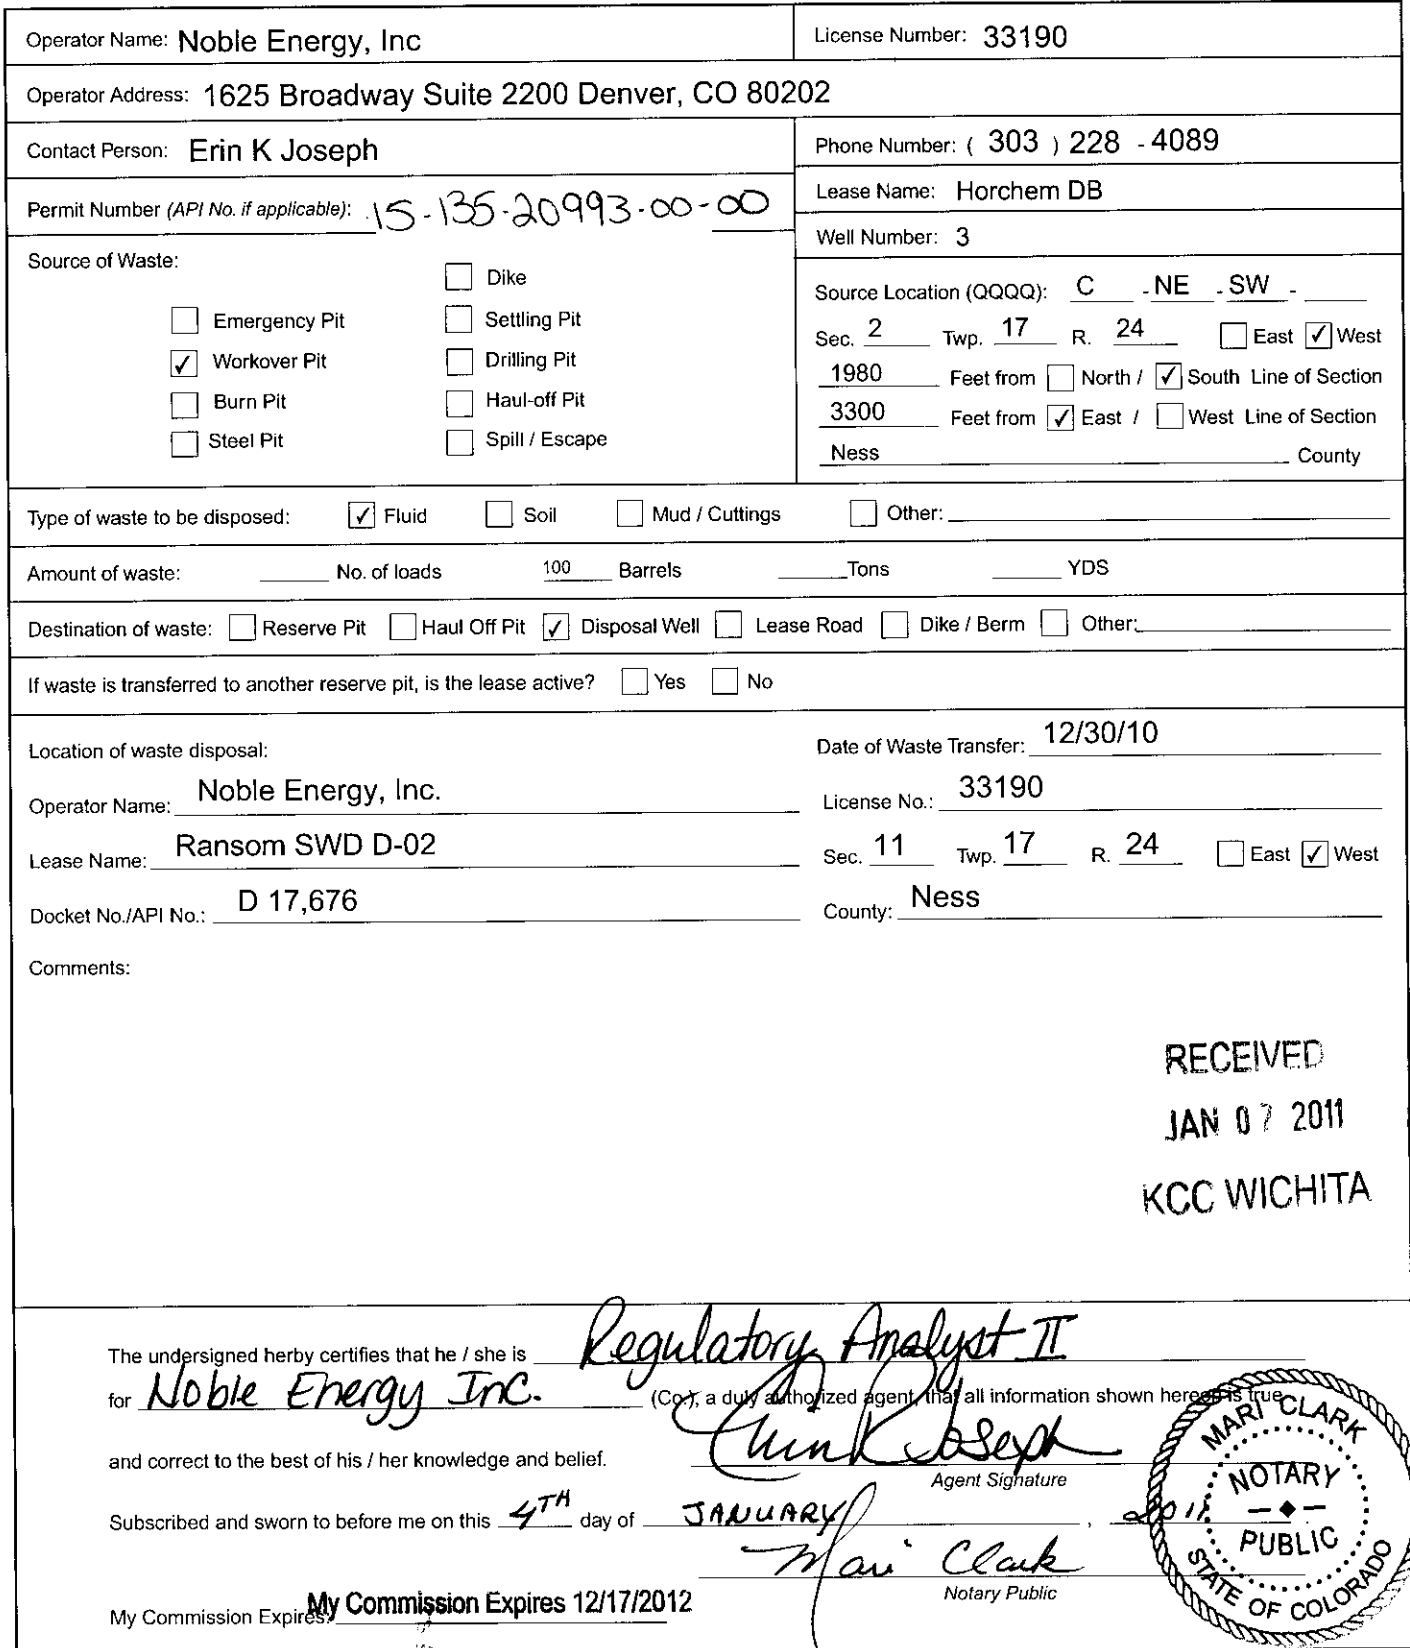 Operator Name: Noble Energy, Inc
License Number: 33190
Operator Address: 1625 Broadway Suite 2200 Denver, CO 80202
Contact Person: Erin K Joseph
Phone Number: ( 303 ) 228 - 4089
Permit Number (API No. if applicable): 15-135-20993-00-00
Lease Name: Horchem DB
Well Number: 3
Source of Waste:
Dike
Emergency Pit
Settling Pit
✓ Workover Pit
Drilling Pit
Burn Pit
Haul-off Pit
Steel Pit
Spill / Escape
Source Location (QQQQ): C - NE - SW -
Sec. 2 Twp. 17 R. 24 East ✓ West
1980 Feet from North / ✓ South Line of Section
3300 Feet from ✓ East / West Line of Section
Ness County
Type of waste to be disposed: ✓ Fluid Soil Mud / Cuttings Other:
Amount of waste: No. of loads 100 Barrels Tons YDS
Destination of waste: Reserve Pit Haul Off Pit ✓ Disposal Well Lease Road Dike / Berm Other:
If waste is transferred to another reserve pit, is the lease active? Yes No
Location of waste disposal:
Date of Waste Transfer: 12/30/10
Operator Name: Noble Energy, Inc.
License No.: 33190
Lease Name: Ransom SWD D-02
Sec. 11 Twp. 17 R. 24 East ✓ West
Docket No./API No.: D 17,676
County: Ness
Comments:
RECEIVED
JAN 07 2011
KCC WICHITA
The undersigned herby certifies that he / she is Regulatory Analyst II
for Noble Energy Inc. (Co.), a duly authorized agent, that all information shown hereon is true
and correct to the best of his / her knowledge and belief. Erin K Joseph
Agent Signature
Subscribed and sworn to before me on this 4TH day of JANUARY, 2011
Mari Clark
Notary Public
My Commission Expires: My Commission Expires 12/17/2012
MARI CLARK
NOTARY
PUBLIC
STATE OF COLORADO